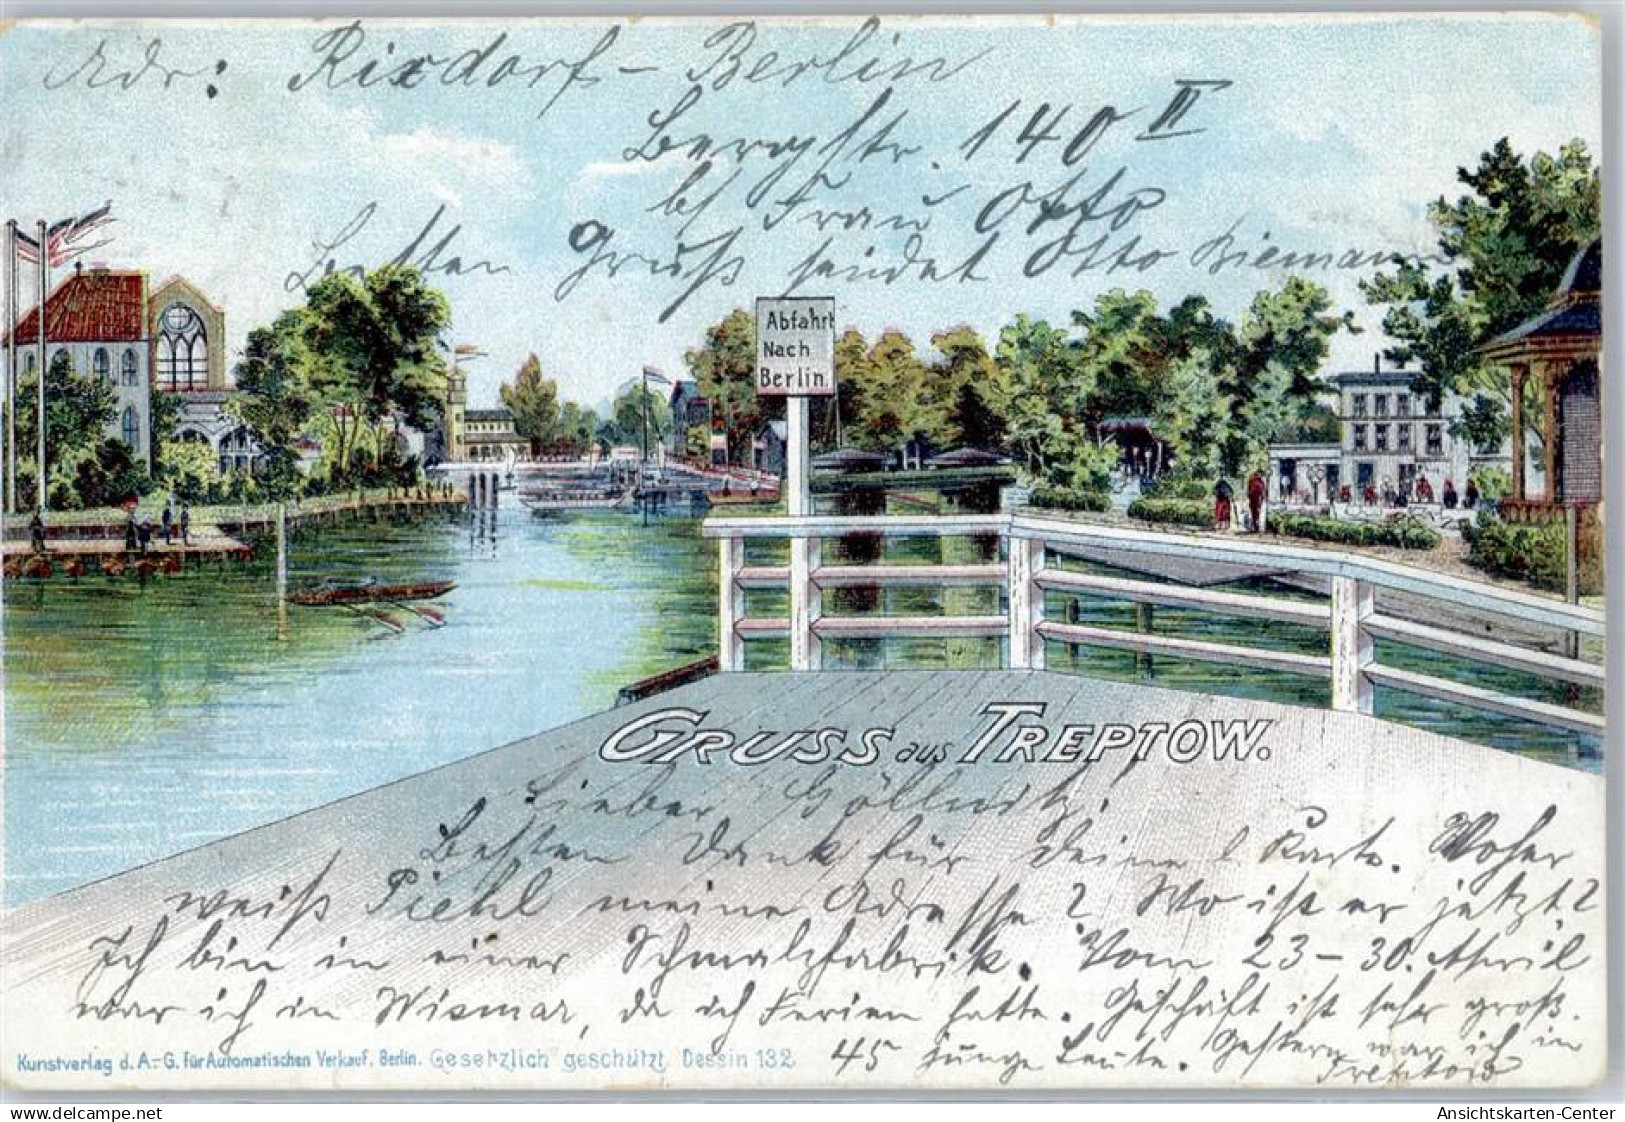 Adr: Rixdorf – Berlin
Bergstr. 140 II
b/ Frau Otto
Besten Gruß sendet Otto Biemann
Abfahrt
Nach
Berlin.
GRUSS aus TREPTOW.
Lieber Göllnitz!
Besten Dank für Deine l. Karte. Woher
weiß Piehl meine Adresse? Wo ist er jetzt?
Ich bin in einer Schmalzfabrik. Vom 23 – 30. April
war ich in Wismar, da ich Ferien hatte. Geschäft ist sehr groß.
45 junge Leute. Gestern war ich in
Treptow
Kunstverlag d. A.-G. für Automatischen Verkauf, Berlin. Gesetzlich geschützt Dessin 132
www.delcampe.net
Ansichtskarten-Center